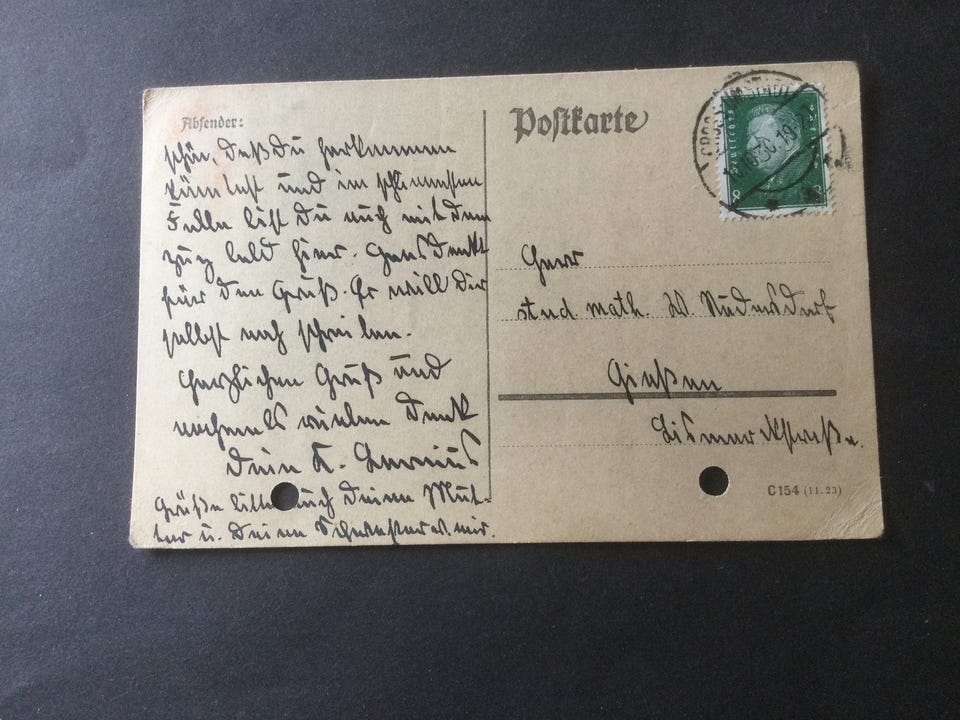 Absender:
schön, daß Du herkommen
könntest und im schlimmsten
Falle bist Du auch mit dem
Zug bald hier. Hans dankt
für den Gruß. Er will Dir
selbst noch schreiben.
Herzlichen Gruß und
nochmals vielen Dank
Dein K.
Grüße bitte auch Deine Mut-
ter u. Deine Schwester v. mir.
Postkarte
Herr
stud math. W.
Gießen
Bismarckstraße.
C 154 (11.23)